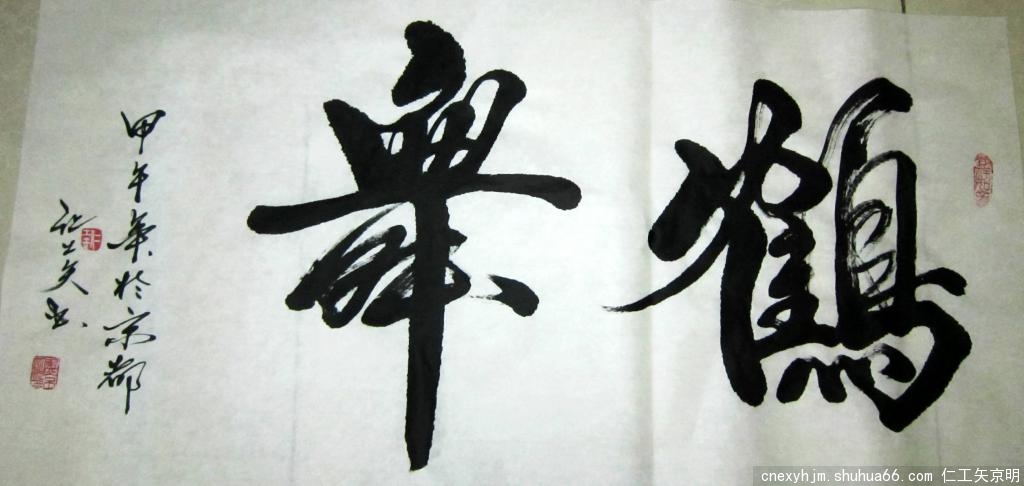 鶴舞
甲午年於京都
cnexyhjm.shuhua66.com 仁工矢京明